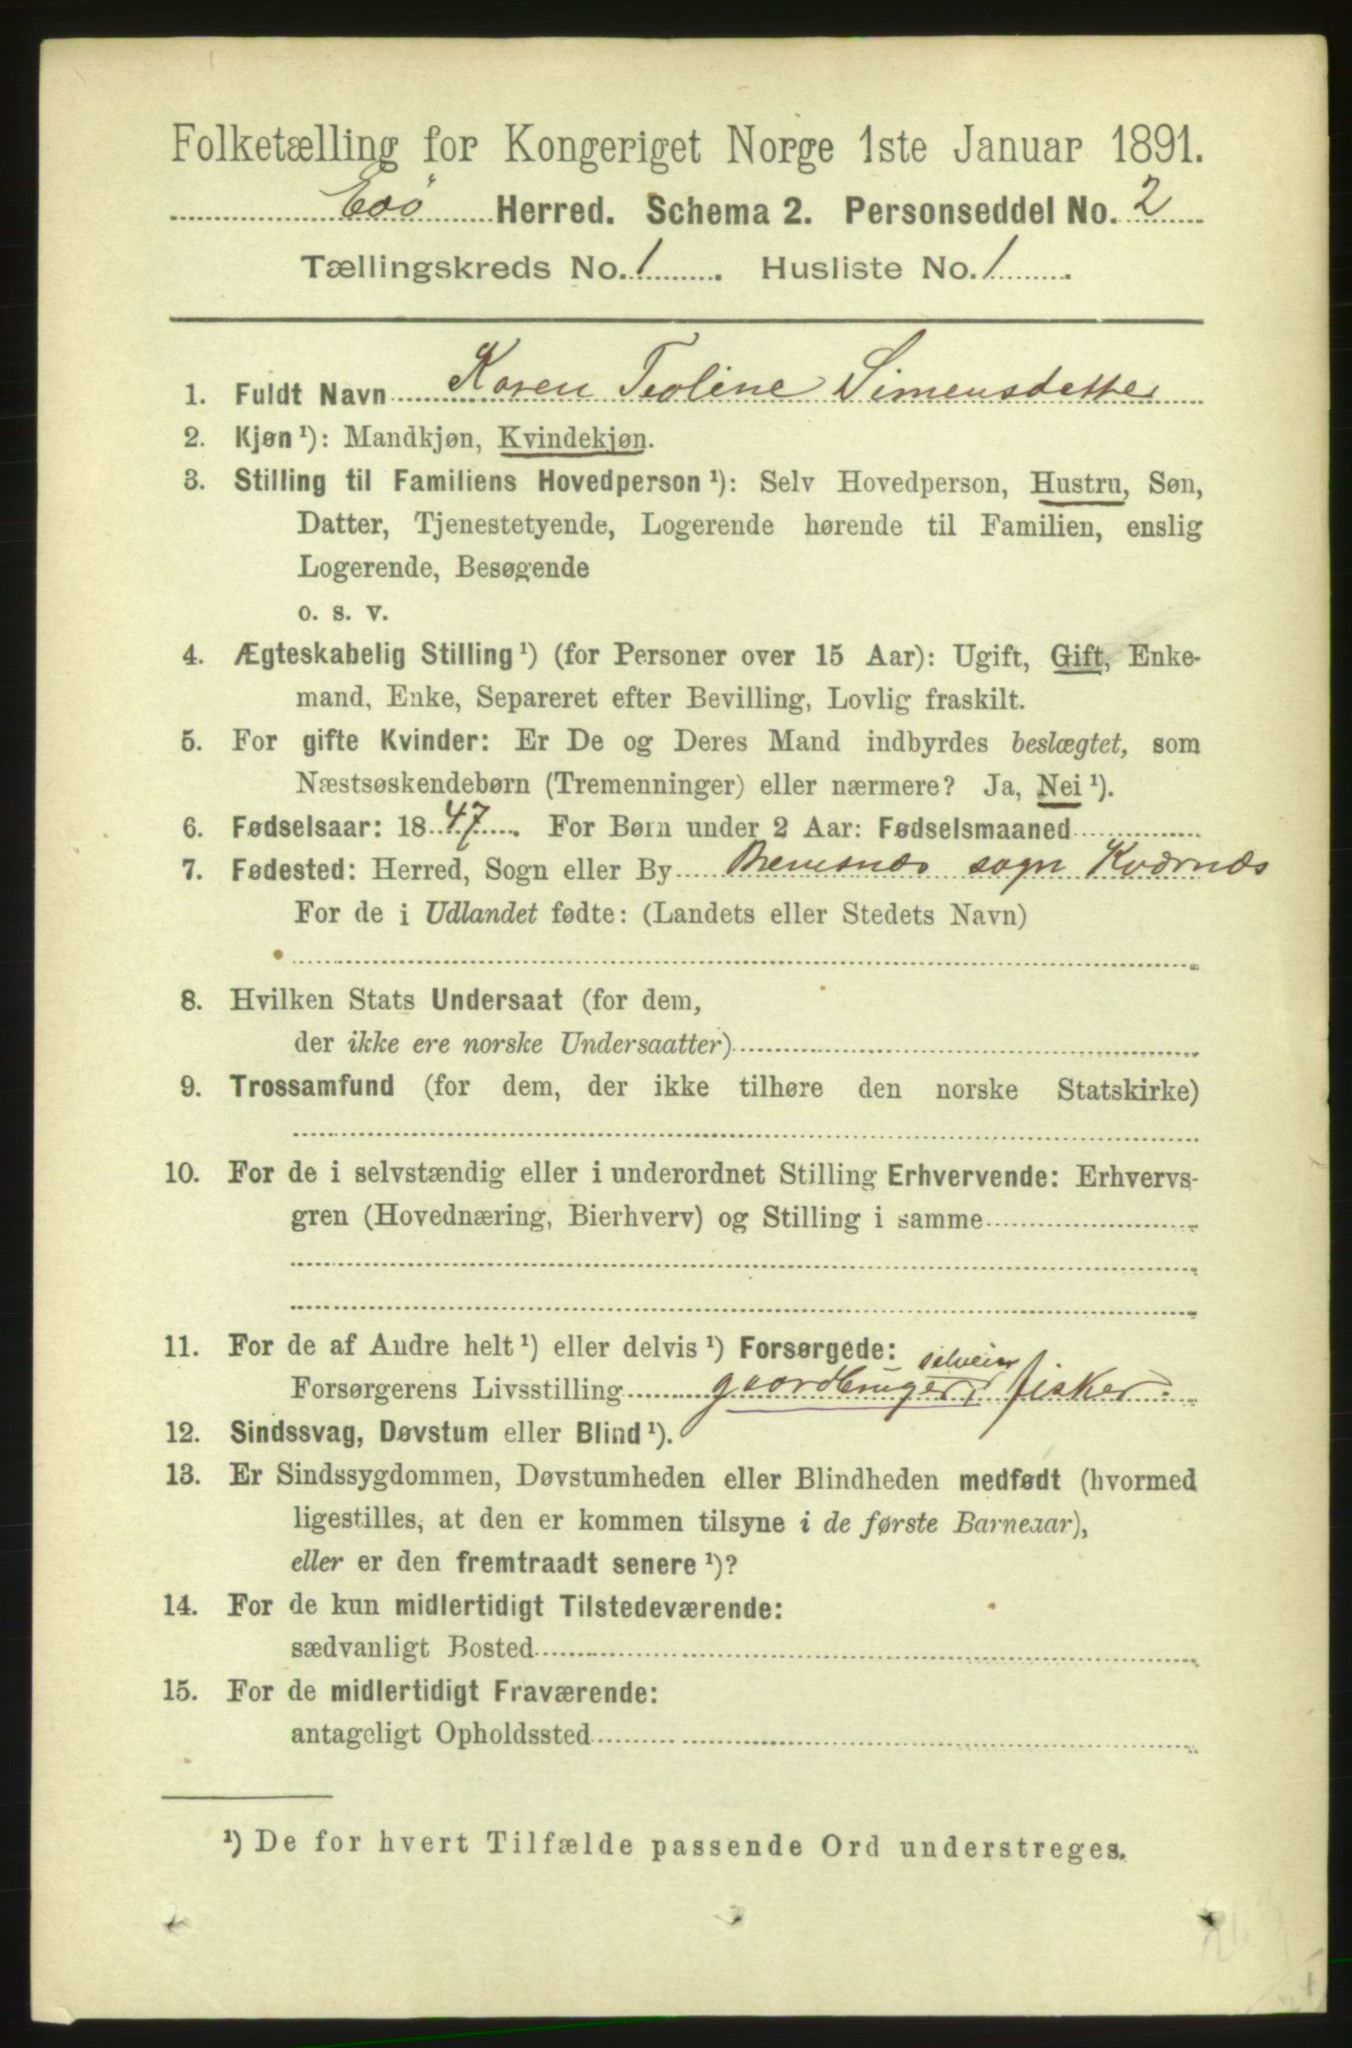 Folketælling for Kongeriget Norge 1ste Januar 1891.
Edø Herred. Schema 2. Personseddel No. 2
Tællingskreds No. 1. Husliste No. 1.
1. Fuldt Navn Karen Teoline Simensdatter
2. Kjøn ¹): Mandkjøn, Kvindekjøn.
3. Stilling til Familiens Hovedperson ¹): Selv Hovedperson, Hustru, Søn,
Datter, Tjenestetyende, Logerende hørende til Familien, enslig
Logerende, Besøgende
o. s. v.
4. Ægteskabelig Stilling ¹) (for Personer over 15 Aar): Ugift, Gift, Enke-
mand, Enke, Separeret efter Bevilling, Lovlig fraskilt.
5. For gifte Kvinder: Er De og Deres Mand indbyrdes beslægtet, som
Næstsøskendebørn (Tremenninger) eller nærmere? Ja, Nei ¹).
6. Fødselsaar: 1847. For Børn under 2 Aar: Fødselsmaaned
7. Fødested: Herred, Sogn eller By Bremsnæs sogn Kværnæs
For de i Udlandet fødte: (Landets eller Stedets Navn)
8. Hvilken Stats Undersaat (for dem,
der ikke ere norske Undersaatter)
9. Trossamfund (for dem, der ikke tilhøre den norske Statskirke)
10. For de i selvstændig eller i underordnet Stilling Erhvervende: Erhvervs-
gren (Hovednæring, Bierhverv) og Stilling i samme
11. For de af Andre helt ¹) eller delvis ¹) Forsørgede:
selveier
Forsørgerens Livsstilling gaardbruger, fisker.
12. Sindssvag, Døvstum eller Blind ¹).
13. Er Sindssygdommen, Døvstumheden eller Blindheden medfødt (hvormed
ligestilles, at den er kommen tilsyne i de første Barneaar),
eller er den fremtraadt senere ¹)?
14. For de kun midlertidigt Tilstedeværende:
sædvanligt Bosted
15. For de midlertidigt Fraværende:
antageligt Opholdssted
¹) De for hvert Tilfælde passende Ord understreges.